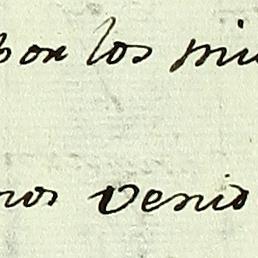 por los mi
nos venio